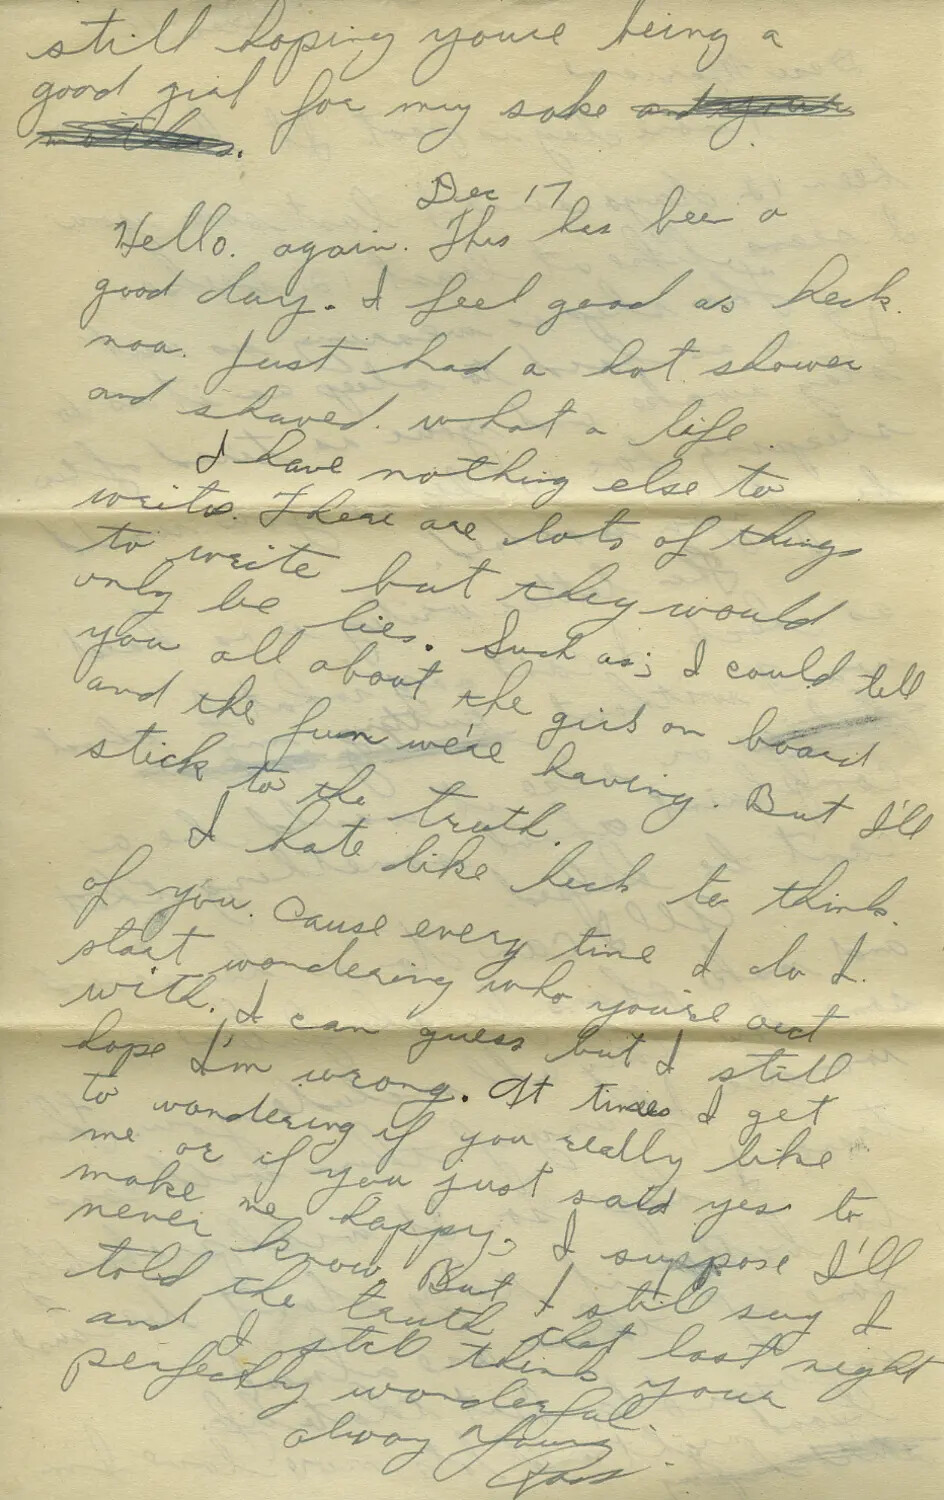 still hoping youre being a
good girl for my sake and your
mothers.
Dec 17
Hello. again. This has been a
good day. I feel good as heck.
now. Just had a hot shower
and shaved. what a life.
I have nothing else to
write. There are lots of things
to write but they would
only be lies. Such as; I could tell
you all about the girls on board
and the fun we're having. But I'll
stick to the truth.
I hate like heck to think.
of you. Cause every time I do I.
start wondering who you're out
with. I can guess but I still
hope I'm wrong. At times I get
to wondering if you really like
me or if you just said yes to
make me happy, I suppose I'll
never know. But I still say I
told the truth that last night
and I still think your
perfectly wonderful.
alway Yours